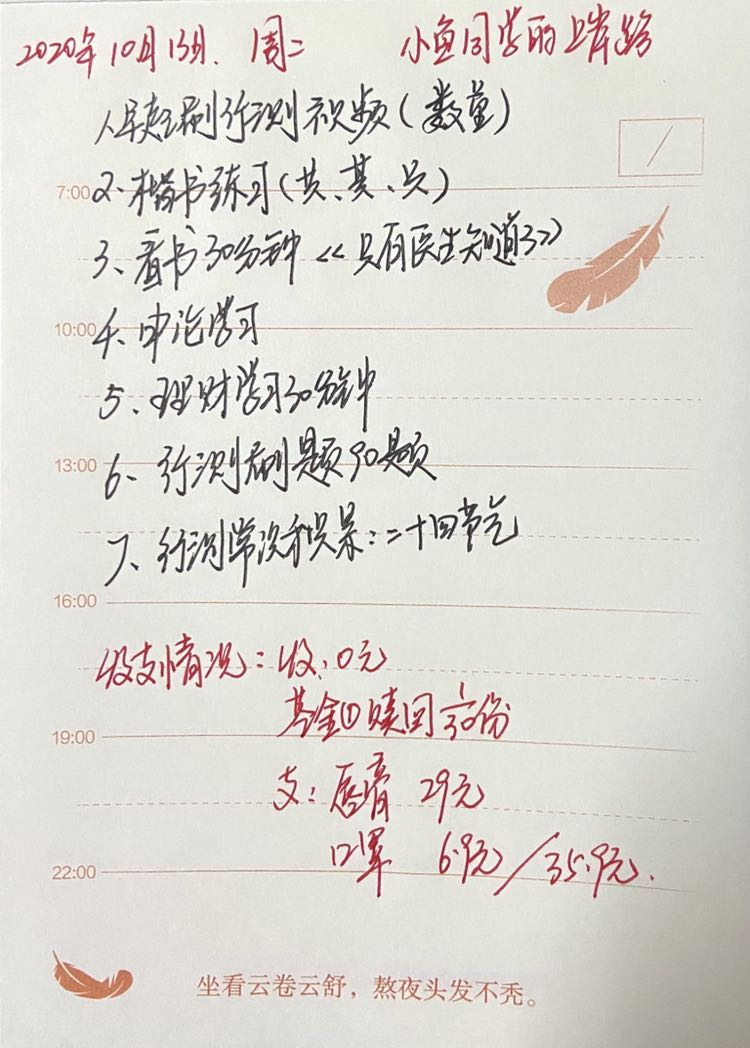 2020年10月13日. 周二 小鱼同学的上岸路
1、早起刷行测视频(数量)
7:00 2、楷书练习(共、其、只)
3、看书30分钟《只有医生知道3》
10:00 4、申论学习
5、理财学习30分钟
13:00 6、行测刷题90题
7、行测常识积累:二十四节气
16:00
收支情况:收:0元
基金①赎回1/30份
19:00
支:唇膏 29元
口罩 6.9元/35.9元.
22:00
坐看云卷云舒,熬夜头发不秃。